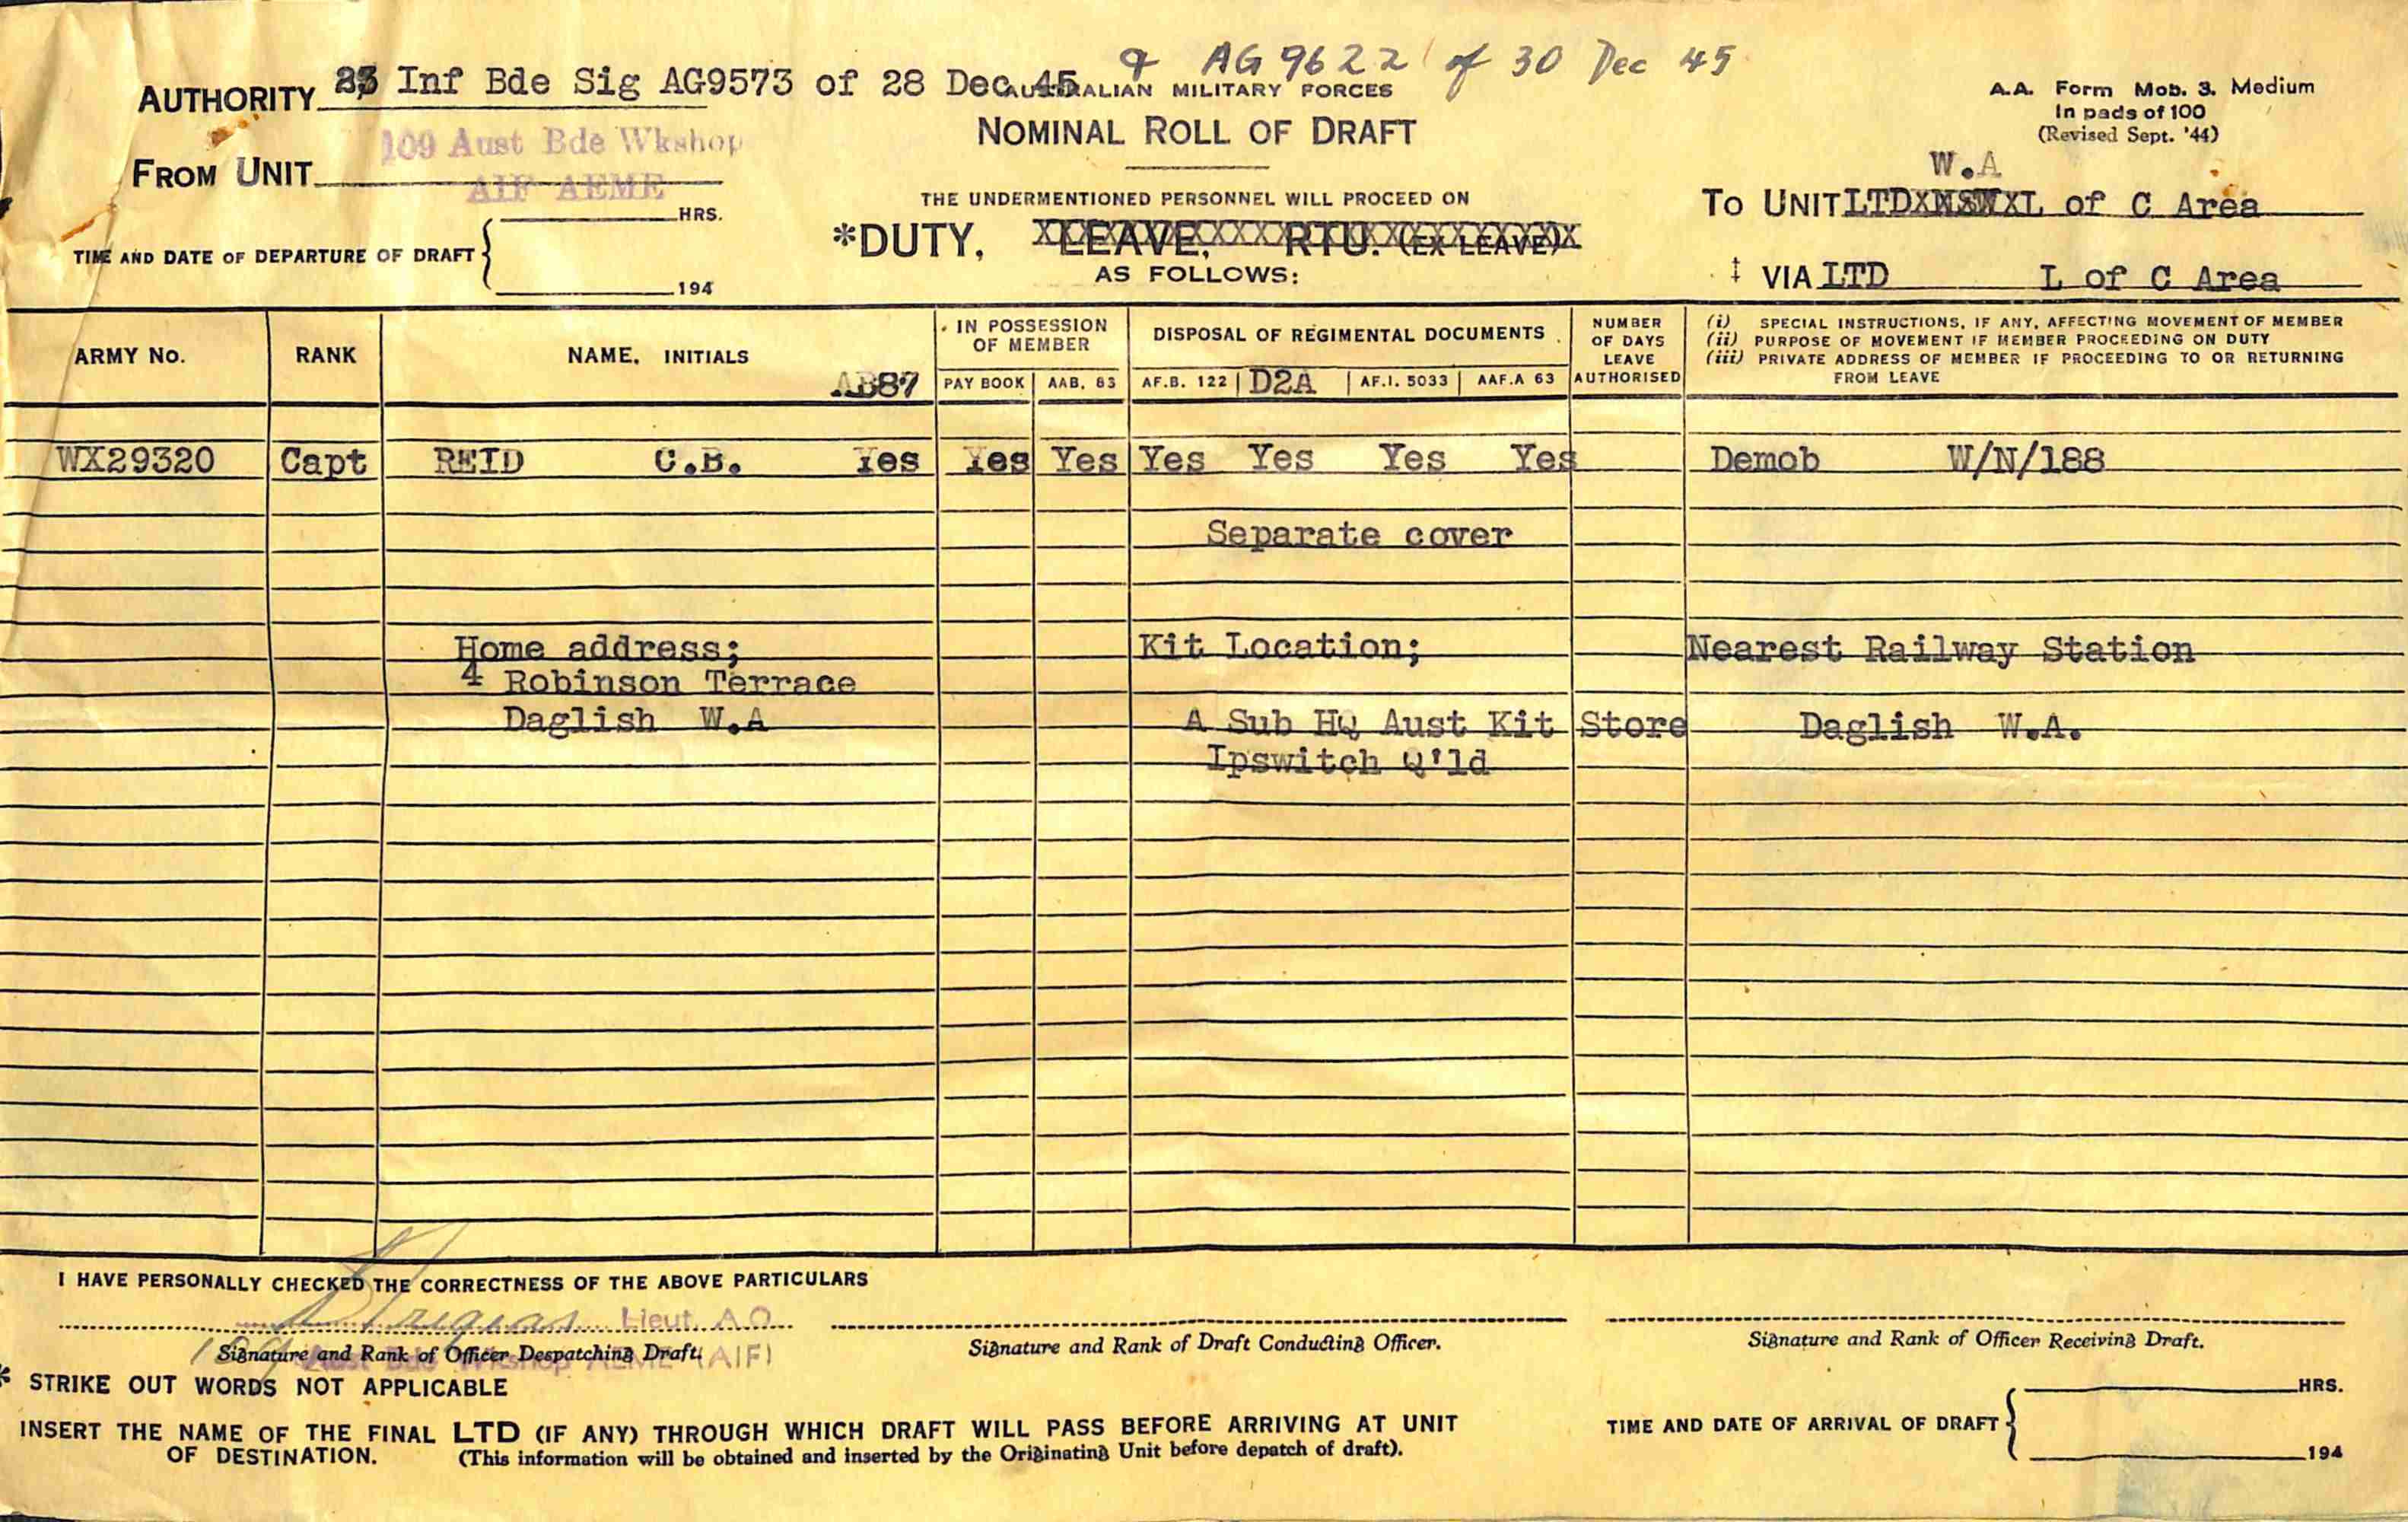 & AG 9622 of 30 Dec 45
AUTHORITY 23 Inf Bde Sig AG9573 of 28 Dec 45
AUSTRALIAN MILITARY FORCES
A.A. Form Mob. 3. Medium
In pads of 100
(Revised Sept. '44)
NOMINAL ROLL OF DRAFT
FROM UNIT 109 Aust Bde Wkshop
AIF AEME
W.A
TO UNIT LTDXNSWXL of C Area
THE UNDERMENTIONED PERSONNEL WILL PROCEED ON
*DUTY, LEAVE, RTU. (EX LEAVE)
AS FOLLOWS:
HRS.
TIME AND DATE OF DEPARTURE OF DRAFT
194
‡ VIA LTD L of C Area
ARMY No. RANK NAME, INITIALS AB87
IN POSSESSION
OF MEMBER
PAY BOOK AAB. 83
DISPOSAL OF REGIMENTAL DOCUMENTS
AF.B. 122 D2A AF.I. 5033 AAF.A 63
NUMBER
OF DAYS
LEAVE
AUTHORISED
(i) SPECIAL INSTRUCTIONS, IF ANY, AFFECTING MOVEMENT OF MEMBER
(ii) PURPOSE OF MOVEMENT IF MEMBER PROCEEDING ON DUTY
(iii) PRIVATE ADDRESS OF MEMBER IF PROCEEDING TO OR RETURNING
FROM LEAVE
WX29320 Capt REID C.B. Yes Yes Yes Yes Yes Yes Yes Demob W/N/188
Separate cover
Home address; Kit Location; Nearest Railway Station
4 Robinson Terrace
Daglish W.A A Sub HQ Aust Kit Store Daglish W.A.
Ipswitch Q'ld
I HAVE PERSONALLY CHECKED THE CORRECTNESS OF THE ABOVE PARTICULARS
Lieut. A O
Signature and Rank of Officer Despatching Draft.
109 Aust Bde Wkshop AEME (AIF)
Signature and Rank of Draft Conducting Officer.
Signature and Rank of Officer Receiving Draft.
* STRIKE OUT WORDS NOT APPLICABLE
INSERT THE NAME OF THE FINAL LTD (IF ANY) THROUGH WHICH DRAFT WILL PASS BEFORE ARRIVING AT UNIT
OF DESTINATION. (This information will be obtained and inserted by the Originating Unit before depatch of draft).
HRS.
TIME AND DATE OF ARRIVAL OF DRAFT
194